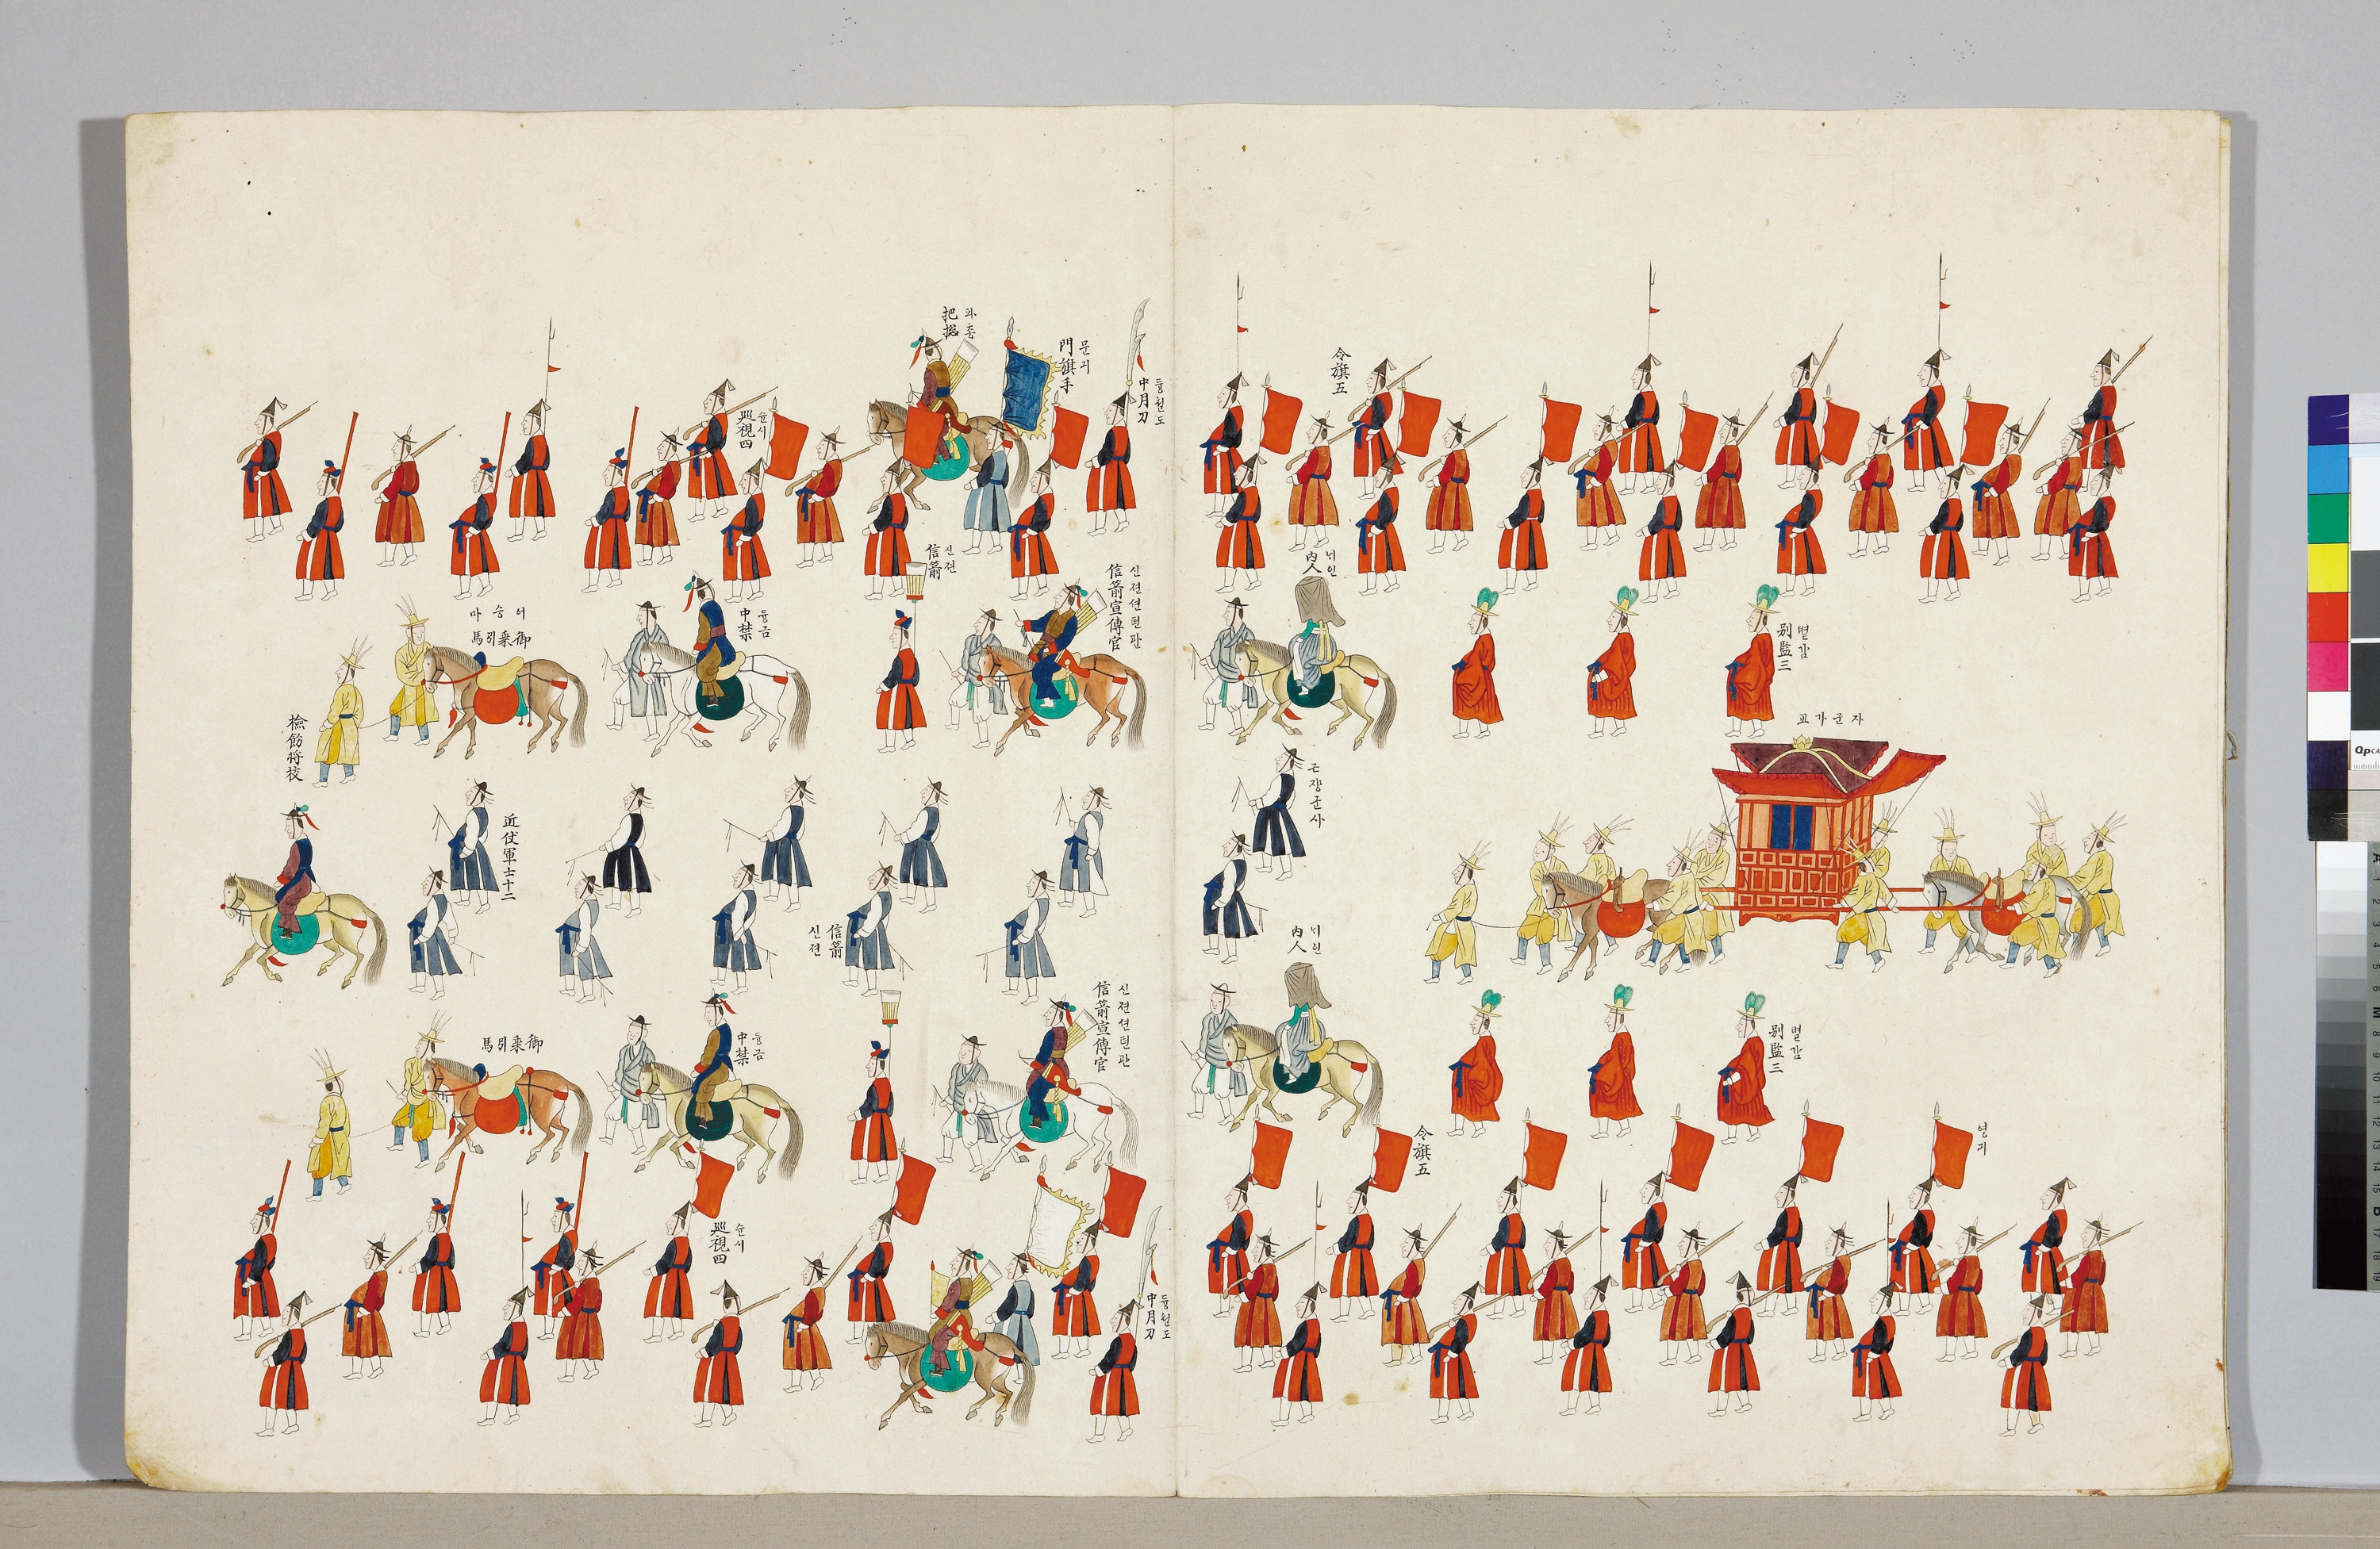 교가군자
별감
別監三
별감
別監三
영긔
令旗五
令旗五
니인
內人
근쟝군사
니인
內人
듕월도
中月刀
문긔
門旗手
파춍
把摠
슌시
巡視四
신젼션뎐관
信箭宣傳官
신젼
信箭
듕금
中禁
어승마
御乘引馬
近仗軍士十二
檢飭將校
信箭
신젼
신젼션뎐관
信箭宣傳官
듕금
中禁
御乘引馬
듕월도
中月刀
슌시
巡視四